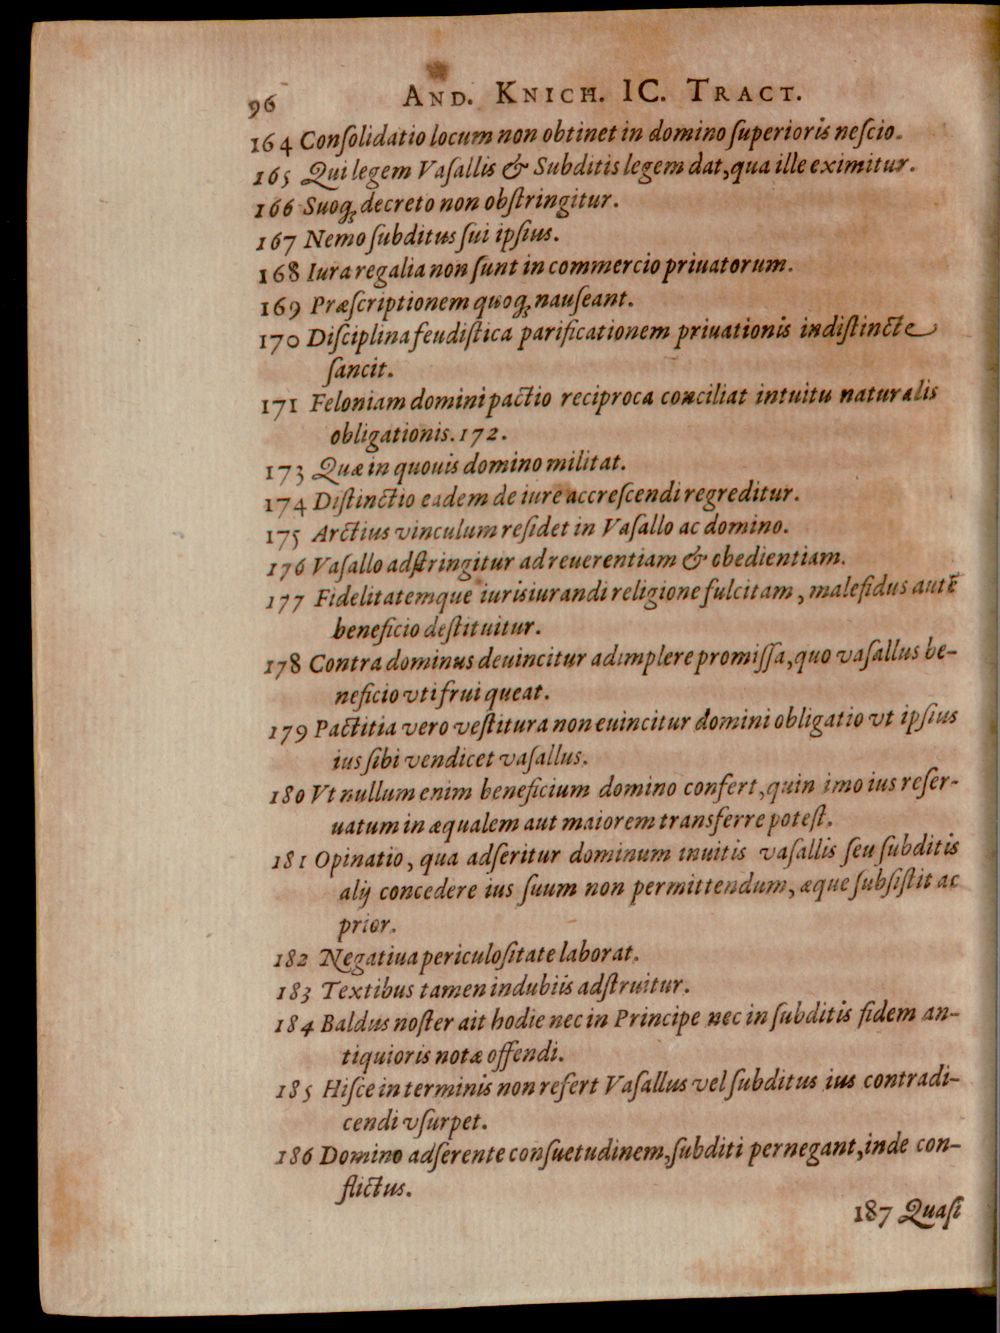 96 AND. KNICH. IC. TRACT.
164 Conſolidatio locum non obtinet in domino ſuperioris neſcio.
165 Qui legem Vaſallis & Subditis legem dat, qua ille eximitur.
166 Suoq́; decreto non obſtringitur.
167 Nemo ſubditus ſui ipſius.
168 Iura regalia non ſunt in commercio priuatorum.
169 Præſcriptionem quoq́; nauſeant.
170 Diſciplina feudiſtica parificationem priuationis indiſtincte
ſancit.
171 Feloniam domini pactio reciproca conciliat intuitu naturalis
obligationis. 172.
173 Quæ in quouis domino militat.
174 Diſtinctio eadem de iure accreſcendi regreditur.
175 Arctius vinculum reſidet in Vaſallo ac domino.
176 Vaſallo adſtringitur ad reuerentiam & obedientiam.
177 Fidelitatemque iurisiurandi religione fulcitam, malefidus autẽ
beneficio deſtituitur.
178 Contra dominus deuincitur adimplere promiſſa, quo vaſallus be-
neficio vti frui queat.
179 Pactitia vero veſtitura non euincitur domini obligatio vt ipſius
ius ſibi vendicet vaſallus.
180 Vt nullum enim beneficium domino confert, quin imo ius reſer-
uatum in æqualem aut maiorem transferre poteſt.
181 Opinatio, qua adſeritur dominum inuitis vaſallis ſeu ſubditis
alij concedere ius ſuum non permittendum, æque ſubſiſtit ac
prior.
182 Negatiua periculoſitate laborat.
183 Textibus tamen indubiis adſtruitur.
184 Baldus noſter ait hodie nec in Principe nec in ſubditis fidem an-
tiquioris notæ offendi.
185 Hiſce in terminis non refert Vaſallus vel ſubditus ius contradi-
cendi vſurpet.
186 Domino adſerente conſuetudinem, ſubditi pernegant, inde con-
flictus.
187 Quaſi